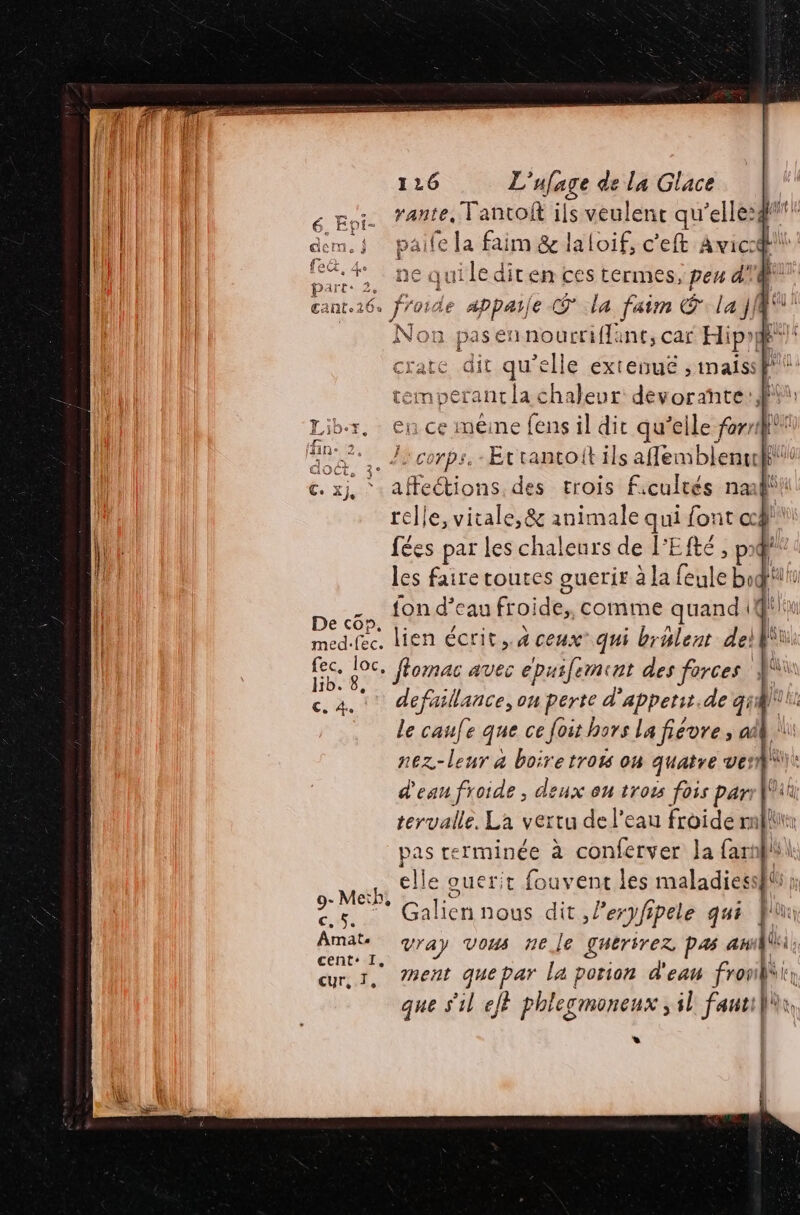 126 L'uſage de la Glace
rante. Tantoſt ils veulent qu'elle
paiſe la faim & la ſoif, c'eſt Avic
ne qui le dit en ces termes, peu d'
froide appaiſe & la faim & la ſ
Non pas en nourriſſant, car Hip
crate dit qu'elle extenuë, mais
temperant la chaleur devorante
en ce méme ſens il dit qu'elle
corps. Et tantoſt ils aſſemblent
affections des trois facultés na
relle, vitale, & animale qui ſont
ſées par les chaleurs de l'Eſté,
les faire toutes guerir à la ſeule
ſon d'eau froide, comme quand
lien écrit, à ceux qui brûlent de
ſtomac avec épuiſement des forces
defaillance, ou perte d'appetit. de
le cauſe que ce ſoit hors la fiévre,
nez-leur à boire trois ou quatre
d'eau froide, deux ou trois fois par
tervalle. La vertu de l'eau froide
pas terminée à conſerver la
elle guerit ſouvent les maladies
Galien nous dit, l'eryſipele qui
vray vous ne le guérirez pas
ment que par la potion d'eau froi
que s'il eſt phlegmoneux, il faut
6. Epi-
dem. ſ
ſect. 4.
part. 2.
cant. 26.
Lib. 1.
fin. 2.
doct. 3.
c. xj.
De côp.
med. ſec.
ſec. loc.
lib. 8.
c. 4.
9. Meth.
c. 5.
Amat.
cent. I.
cur. I.